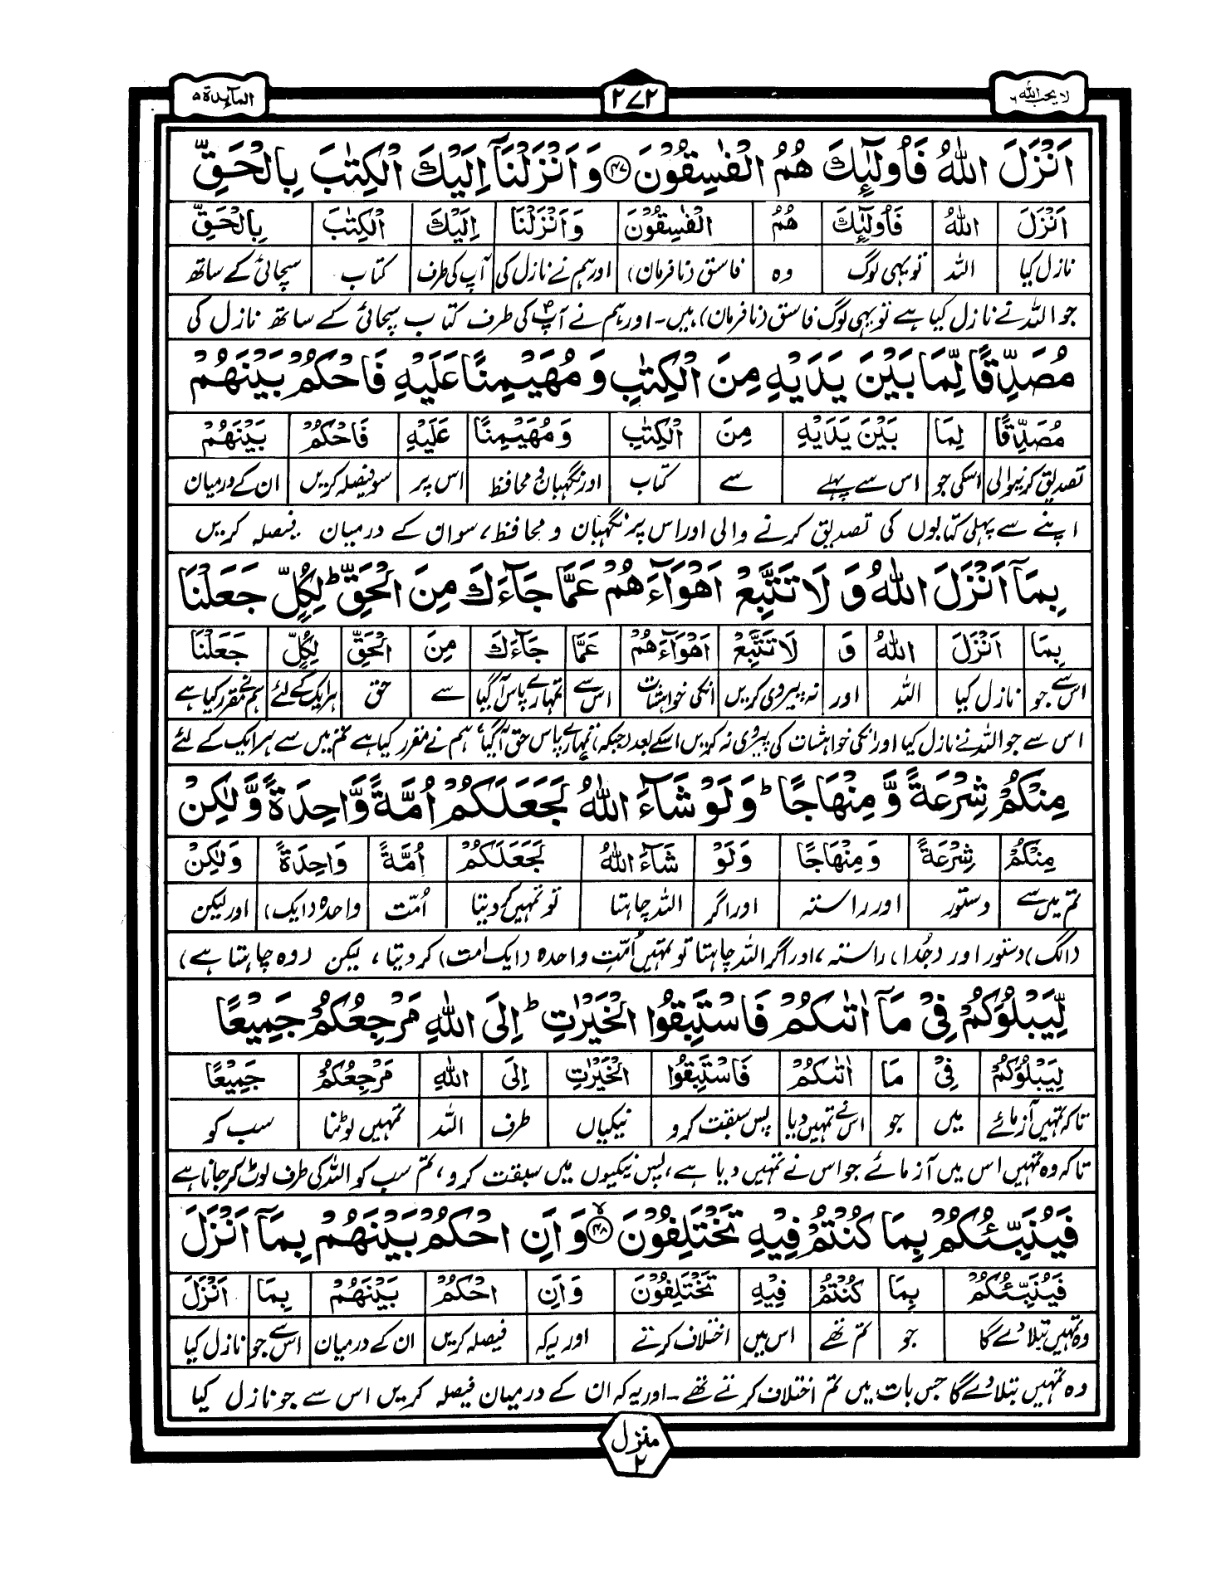 لا یحب اللہ ۶
۲۷۲
المآىِٕدة ۵
اَنْزَلَ اللّٰهُ فَاُولٰٓىِٕكَ هُمُ الْفٰسِقُوْنَ ﴿۴۷﴾ وَ اَنْزَلْنَاۤ اِلَیْكَ الْكِتٰبَ بِالْحَقِّ
اَنْزَلَ اللّٰهُ فَاُولٰٓىِٕكَ هُمُ الْفٰسِقُوْنَ وَاَنْزَلْنَا اِلَیْكَ الْكِتٰبَ بِالْحَقِّ
نازل کیا اللہ تو یہی لوگ وہ فاسق (نافرمان) اور ہم نے نازل کی آپ کی طرف کتاب سچائی کے ساتھ
جو اللہ نے نازل کیا ہے تو یہی لوگ فاسق (نافرمان) ہیں۔ اور ہم نے آپؐ کی طرف کتاب سچائی کے ساتھ نازل کی
مُصَدِّقًا لِّمَا بَیْنَ یَدَیْهِ مِنَ الْكِتٰبِ وَ مُهَیْمِنًا عَلَیْهِ فَاحْكُمْ بَیْنَهُمْ
مُصَدِّقًا لِمَا بَیْنَ یَدَیْهِ مِنَ الْكِتٰبِ وَ مُهَیْمِنًا عَلَیْهِ فَاحْكُمْ بَیْنَهُمْ
تصدیق کرنیوالی اسکی جو اس سے پہلے سے کتاب اور نگہبان و محافظ اس پر سو فیصلہ کریں ان کے درمیان
اپنے سے پہلی کتابوں کی تصدیق کرنے والی اور اس پر نگہبان و محافظ، سو ان کے درمیان فیصلہ کریں
بِمَاۤ اَنْزَلَ اللّٰهُ وَ لَا تَتَّبِعْ اَهْوَآءَهُمْ عَمَّا جَآءَكَ مِنَ الْحَقِّ ؕ لِكُلٍّ جَعَلْنَا
بِمَا اَنْزَلَ اللّٰهُ وَ لَا تَتَّبِعْ اَهْوَآءَهُمْ عَمَّا جَآءَكَ مِنَ الْحَقِّ لِكُلٍّ جَعَلْنَا
اس سے جو نازل کیا اللہ اور نہ پیروی کریں انکی خواہشات اس سے تمہارے پاس آگیا سے حق ہر ایک کے لئے ہم نے مقرر کیا ہے
اس سے جو اللہ نے نازل کیا اور انکی خواہشات کی پیروی نہ کریں اسکے بعد (جبکہ) تمہارے پاس حق آگیا، ہم نے مقرر کیا ہے تم میں سے ہر ایک کے لئے
مِنْكُمْ شِرْعَةً وَّ مِنْهَاجًا ؕ وَ لَوْ شَآءَ اللّٰهُ لَجَعَلَكُمْ اُمَّةً وَّاحِدَةً وَّ لٰكِنْ
مِنْكُمْ شِرْعَةً وَ مِنْهَاجًا وَلَوْ شَآءَ اللّٰهُ لَجَعَلَكُمْ اُمَّةً وَاحِدَةً وَلٰكِنْ
تم میں سے دستور اور راستہ اور اگر اللہ چاہتا تو تمہیں کر دیتا اُمّت واحدہ (ایک) اور لیکن
(الگ) دستور اور (جُدا) راستہ، اور اگر اللہ چاہتا تو تمہیں اُمّتِ واحدہ (ایک امت) کر دیتا، لیکن (وہ چاہتا ہے)
لِّیَبْلُوَكُمْ فِیْ مَاۤ اٰتٰىكُمْ فَاسْتَبِقُوا الْخَیْرٰتِ ؕ اِلَی اللّٰهِ مَرْجِعُكُمْ جَمِیْعًا
لِیَبْلُوَكُمْ فِیْ مَا اٰتٰىكُمْ فَاسْتَبِقُوا الْخَیْرٰتِ اِلَی اللّٰهِ مَرْجِعُكُمْ جَمِیْعًا
تاکہ تمہیں آزمائے میں جو اس نے تمہیں دیا پس سبقت کرو نیکیاں طرف اللہ تمہیں لوٹنا سب کو
تاکہ وہ تمہیں اس میں آزمائے جو اس نے تمہیں دیا ہے، پس نیکیوں میں سبقت کرو، تم سب کو اللہ کی طرف لوٹ کر جانا ہے
فَیُنَبِّئُكُمْ بِمَا كُنْتُمْ فِیْهِ تَخْتَلِفُوْنَ ۙ﴿۴۸﴾ وَ اَنِ احْكُمْ بَیْنَهُمْ بِمَاۤ اَنْزَلَ
فَیُنَبِّئُكُمْ بِمَا كُنْتُمْ فِیْهِ تَخْتَلِفُوْنَ وَاَنِ احْكُمْ بَیْنَهُمْ بِمَا اَنْزَلَ
وہ تمہیں بتلا دے گا جو تم تھے اس میں اختلاف کرتے اور یہ کہ فیصلہ کریں ان کے درمیان اس سے جو نازل کیا
وہ تمہیں بتلا دے گا جس بات میں تم اختلاف کرتے تھے۔ اور یہ کہ ان کے درمیان فیصلہ کریں اس سے جو نازل کیا
منزل ۲